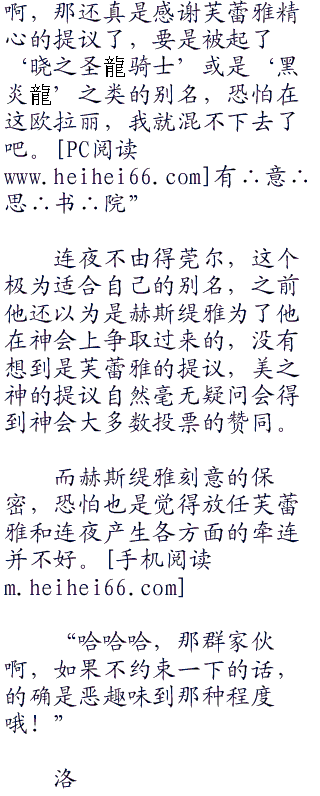 啊，那还真是感谢芙蕾雅精
心的提议了，要是被起了
‘晓之圣龍骑士’或是‘黑
炎龍’之类的别名，恐怕在
这欧拉丽，我就混不下去了
吧。[PC阅读
www.heihei66.com]有∴意∴
思∴书∴院”
连夜不由得莞尔，这个
极为适合自己的别名，之前
他还以为是赫斯缇雅为了他
在神会上争取过来的，没有
想到是芙蕾雅的提议，美之
神的提议自然毫无疑问会得
到神会大多数投票的赞同。
而赫斯缇雅刻意的保
密，恐怕也是觉得放任芙蕾
雅和连夜产生各方面的牵连
并不好。[手机阅读
m.heihei66.com]
“哈哈哈，那群家伙
啊，如果不约束一下的话，
的确是恶趣味到那种程度
哦！”
洛